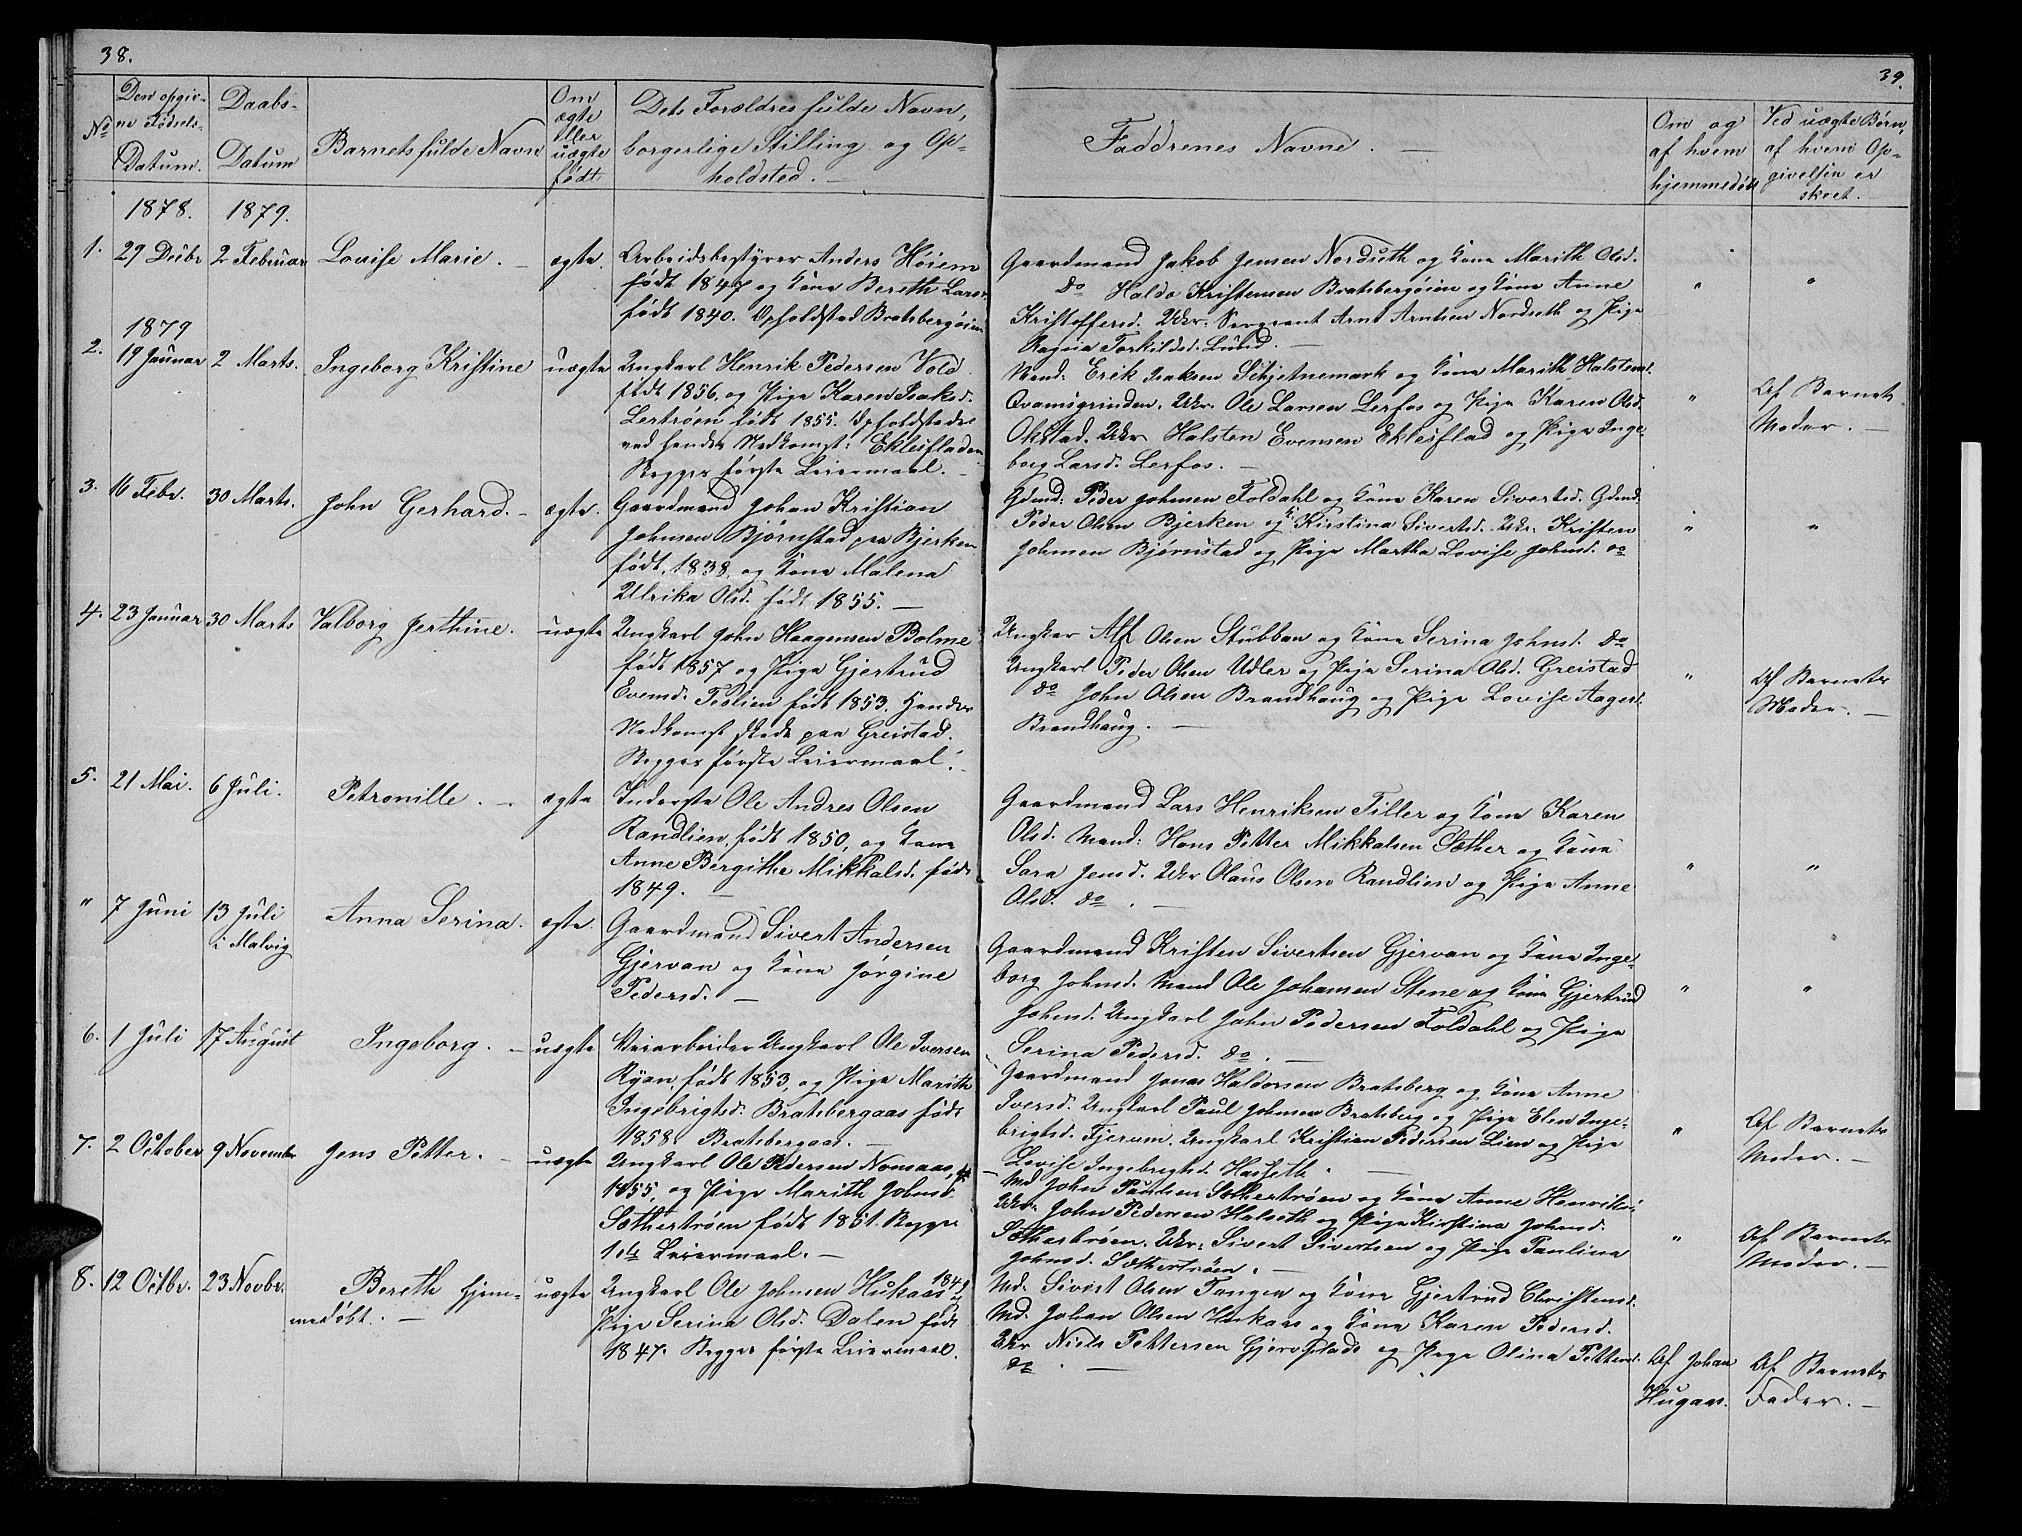 38.
Den opgiv-
ne Fødsels-
Datum.
No
Daabs-
Datum
Barnets fulde Navn
Om
ægte
eller
uægte
født
Dets Forældres fulde Navn,
borgerlige Stilling og Op-
holdsted. —
1878. 1879.
1. 29 Decbr 2 Februar Lovise Marie. — ægte. Arbeidsbestyrer Anders Höiem
født 1847 og Kone Bereth Larsd.
født 1840. Opholdsted Bratsbergöien
1879
2. 19 Januar 2 Marts. Ingeborg Kristine uægte Ungkarl Henrik Pedersen Vold
født 1856, og Pige Karen Isaksd.
Lertrøen født 1855. Opholdsted
ved hendes Nedkomst: Eklesfladen
Begges første Leiermaal. —
3. 16 Febr. 30 Marts. John Gerhard. — ægte. Gaardmand Johan Kristian
Johnsen Bjørnstad paa Bjerken
født 1838, og Kone Malena
Ulrika Olsd. født 1855. —
4. 23 Januar 30 Marts Valborg Jerthine. uægte Ungkarl John Haagensen Bolme
født 1857 og Pige Gjertrud
Evensd. Teslien født 1853. Hendes
Nedkomst skede paa Greistad.
Begges første Leiermaal. —
5. 21 Mai. 6 Juli. Petronille. — ægte Inderste Ole Andres Olsen
Randlien, født 1850, og Kone
Anne Bergitha Mikkalsd. født
1849. —
" 7 Juni 13 Juli Anna Serina. ægte. Gaardmand Sivert Andersen
i Malvig
Gjervan og Kone Jørgine
Pedersd. —
6. 1 Juli 17 August Ingeborg. — uægte Veiarbeider Ungkarl Ole Iversen
Ryan, født 1853, og Pige Marith
Ingebrigtsd. Bratsbergaas født
1858. Bratsbergaas. —
7. 2 October 9 November Jens Petter. — uægte Ungkarl Ole Pedersen Nonsaas, f.
1855, og Pige Marith Johnsd.
Sæthertrøen født 1851. Begges
1ste Leiermaal. —
8. 12 Octbr. 23 Novbr. Bereth hjem- uægte Ungkarl Ole Johnsen Hukaas 1849
medøbt. — og
Pige Serina Olsd. Dalen født
1847. Begges første Leiermaal.
39.
Faddrenes Navne. —
Om og
af hvem
hjemmedøbt
Ved uægte Børn,
af hvem Op-
givelsen er
skeet. —
Gaardmand Jakob Jensen Nordseth og Kone Marith Olsd.
Do Haldo Kristensen Bratsbergöien og Kone Anne " "
Kristoffersd. Ukr. Sergeant Arnt Arntsen Nordseth og Pige
Ragna Torkildsd. Lund. —
Mand: Erik Isaksen Schjetnemark og Kone Marith Halstensd.
Kvamsgrinden. Ukr. Ole Larsen Lerfos og Pige Karen Olsd. " Af Barnets
Okstad. Ukr. Halsten Evensen Eklesflad og Pige Inge- Moder. —
borg Larsd. Lerfos. —
Gdmd: Peder Johnsen Foldahl og Kone Karen Sivertsd. Gdmd.
Peder Olsen Bjerken og K. Kirstina Sivertsd. Ukr. Kristen " "
Johnsen Bjørnstad og Pige Martha Lovise Johnsd. do
Ungkar Alf Olsen Stubban og Kone Serina Johnsd. Do
Ungkarl Peder Olsen Udler og Pige Serina Olsd. Greistad " Af Barnets
do John Olsen Brandhaug og Pige Lovise Aagesd. Moder. —
Brandhaug. —
Gaardmand Lars Henriksen Tiller og Kone Karen
Olsd. Mand: Hans Petter Mikkalsen Sæther og Kone
Sara Jensd. Ukr Olaus Olsen Randlien og Pige Anne " "
Olsd. do. —
Gaardmand Kristen Sivertsen Gjervan og Kone Inge-
borg Johnsd. Mand Ole Johansen Stene og Kone Gjertrud " "
Johnsd. Ungkarl John Pedersen Foldahl og Pige
Serina Pedersd. do. —
Gaardmand Jonas Haldorsen Bratsberg og Kone Anne
Iversd. Ungkarl Paul Johnsen Bratsberg og Pige Elen Inge-
brigtsd. Fjerem. Ungkarl Kristian Pedersen Lien og Pige " Af Barnets
Lovise Ingebrigtsd. Halseth. — Moder. —
Md John Paulsen Sæthertrøen og Kone Anne Henriksd.
Ukr. John Pedersen Halseth og Pige Kirstina Johnsd.
Sæthertrøen. Ukr: Sivert Sivertsen og Pige Paulina " Af Barnets
Johnsd. Sæthertrøen. — Moder. —
Md. Sivert Olsen Tangen og Kone Gjertrud Christensd.
Md. Johan Olsen Hukaas og Kone Karen Pedersd.
Ukr Niels Pettersen Gjervplads og Pige Olina Pettersd. Af Johan Af Barnets
do. — Hugaas. Fader. —